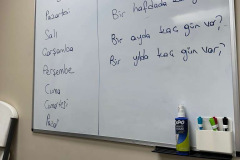 Pazartesi
Salı
Çarşamba
Perşembe
Cuma
Cumartesi
Pazar
Bir haftada
Bir ayda kaç gün var?
Bir yılda kaç gün var?
EXPO